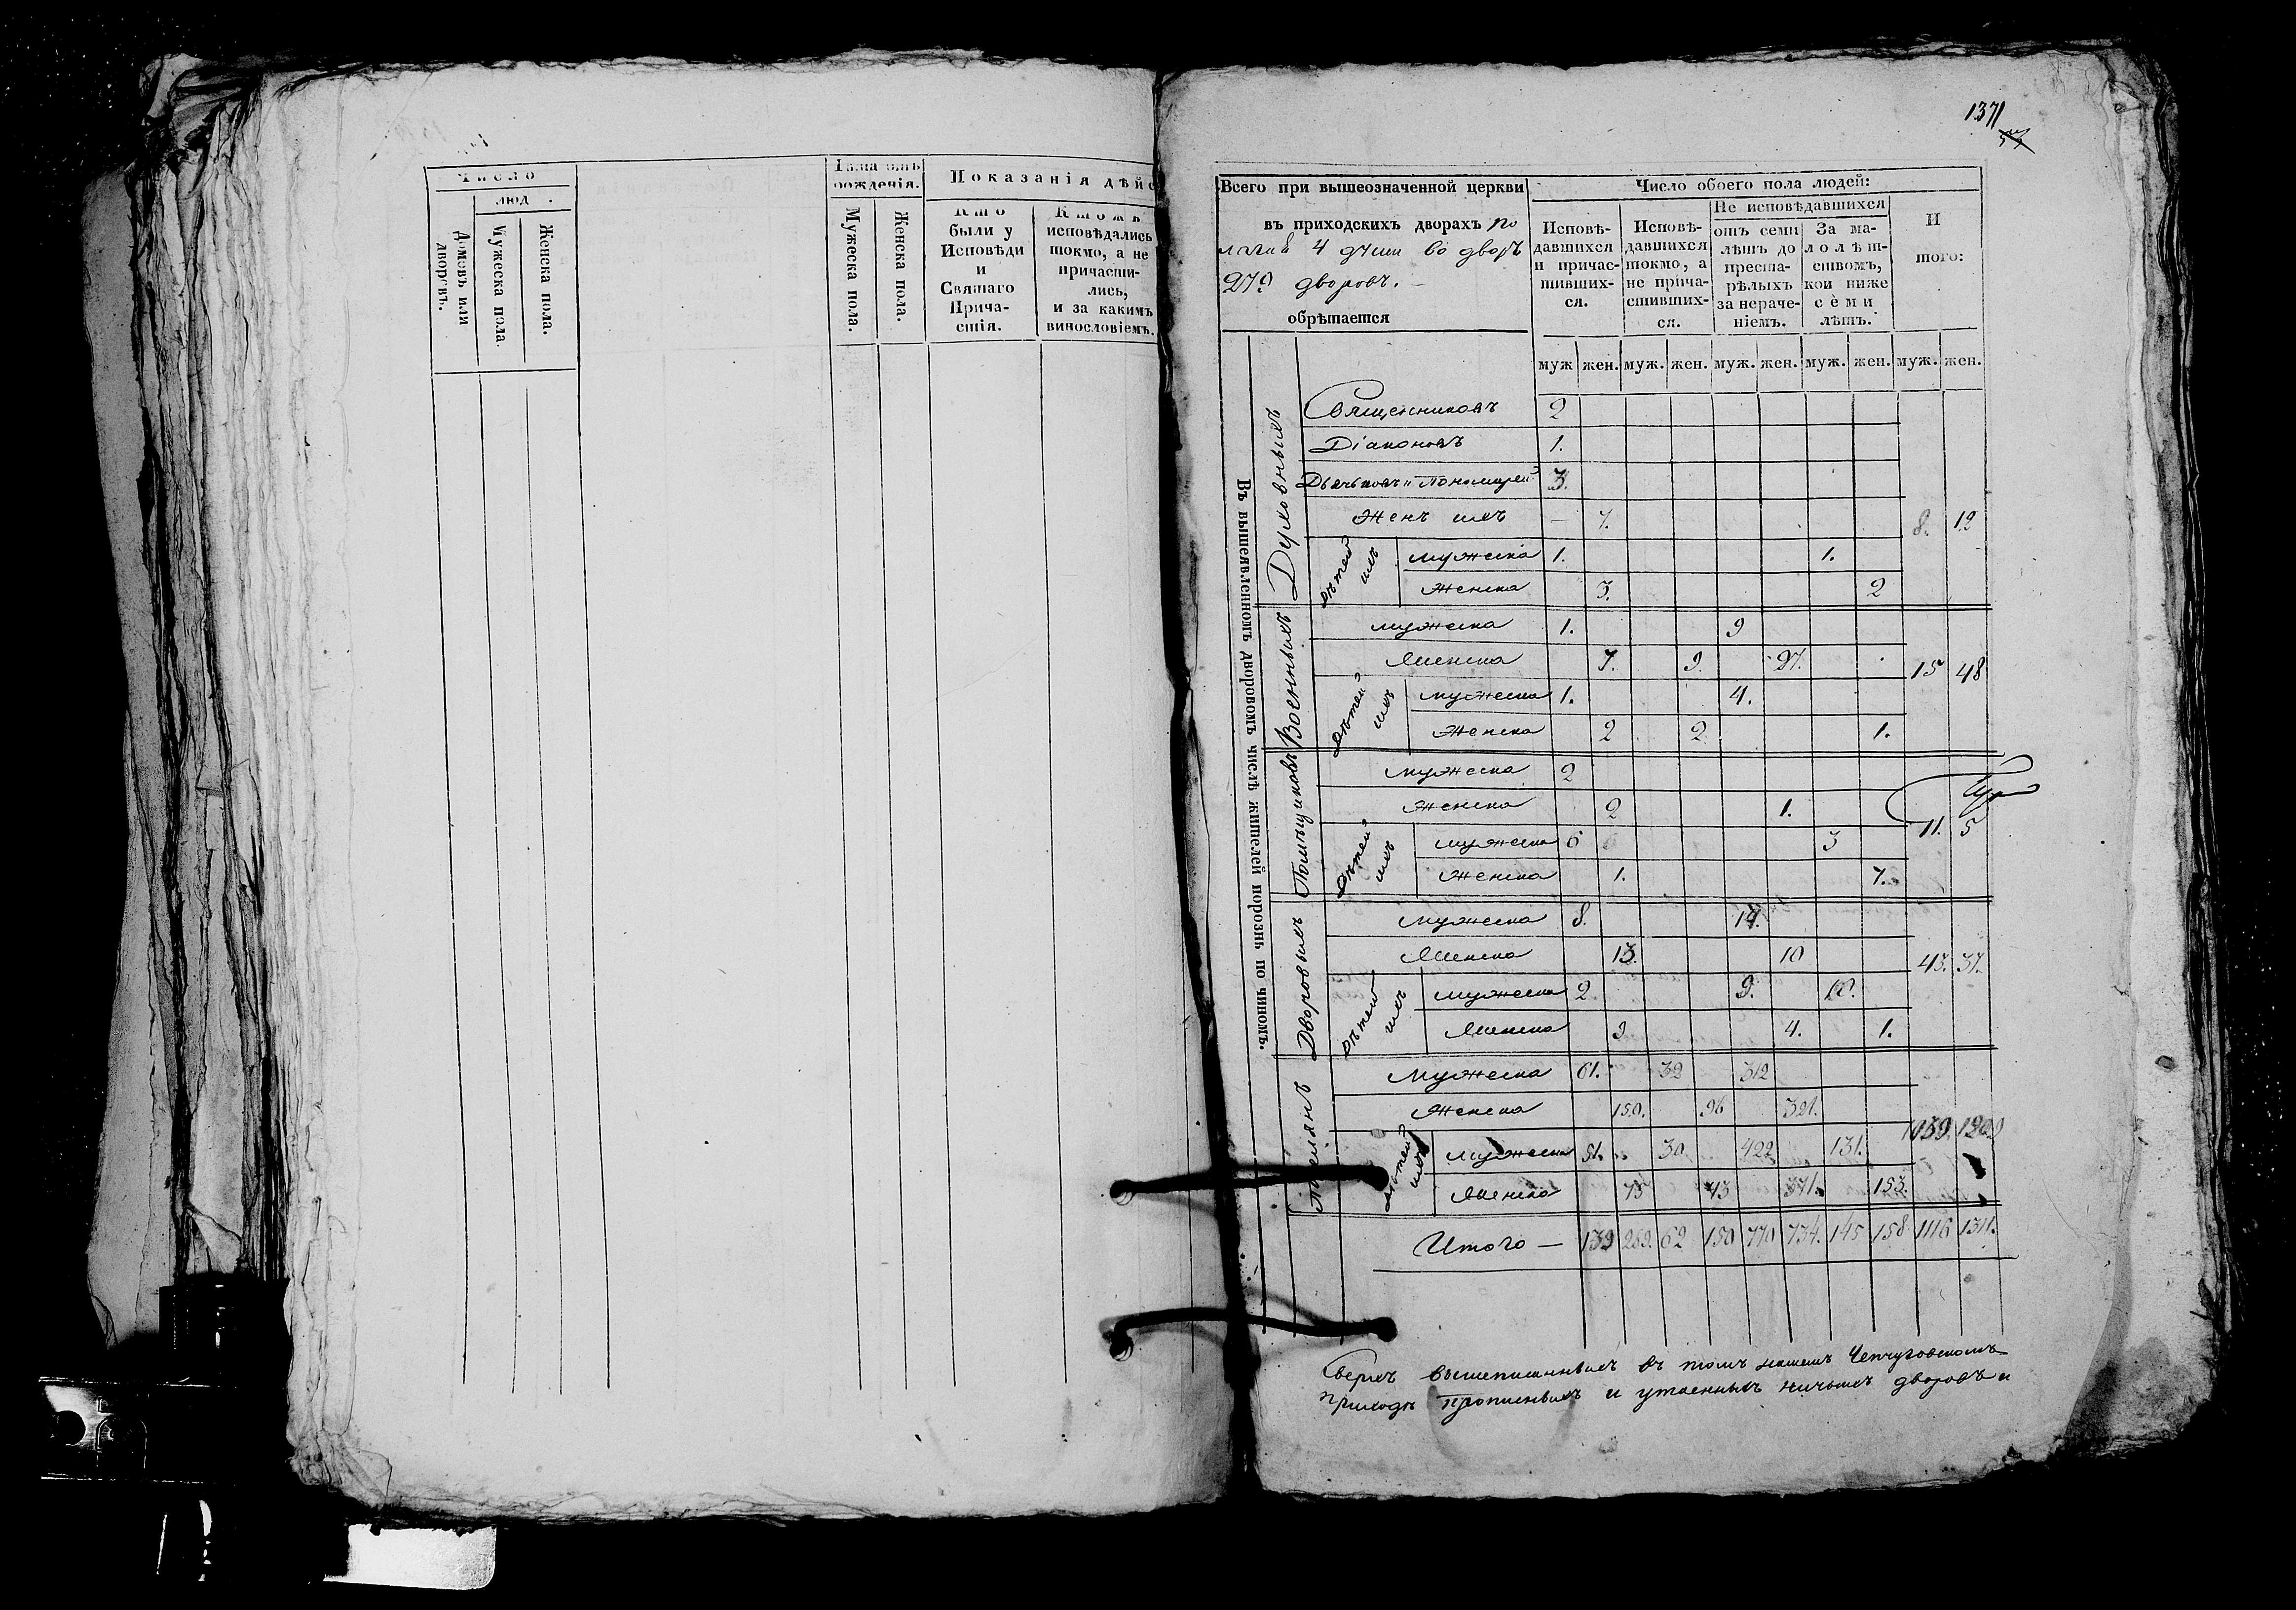 1371
Число
люд
Домовъ или дворовъ.
Мужеска пола.
Женска пола.
Лѣта отъ
рожденія.
Мужеска пола.
Женска пола.
Показанія дѣйс
Кто
были у
Исповѣди
и
Святаго
Прича-
стія.
Ктожъ
исповѣдались
токмо, а не
причасти-
лись,
и за какимъ
винословіемъ.
Всего при вышеозначенной церкви
въ приходскихъ дворахъ по
лагая 4 души во дворъ
279 дворовъ.
обрѣтается
Число обоего пола людей:
Исповѣ-
давшихся
и причас-
тивших-
ся.
Исповѣ-
давшихся
токмо, а
не прича-
стивших-
ся.
Не исповѣдавшихся
отъ семи
лѣтъ до
преста-
рѣлыхъ
за нераче-
ніемъ.
За ма-
лолѣт-
ствомъ,
кои ниже
сѐми
лѣтъ.
И
того:
муж жен. муж. жен. муж. жен. муж. жен. муж. жен.
Въ вышеявленномъ дворовомъ числѣ жителей порознь по чиномъ.
Духовныхъ
Священниковъ 2
Діаконовъ 1.
Дьячковъ и Пономарей 3.
Женъ ихъ — 7. 8. 12
Дѣтей ихъ
мужеска 1. 1.
Женска 3. 2
Военныхъ
мужеска 1. 9
Женска 7. 9. 27. 15 48
Дѣтей ихъ
мужеска 1. 4.
Женска 2 2 1.
Помѣщиковъ
мужеска 2
Женска 2 1.
11. 5
Дѣтей ихъ
мужеска 6 3
Женска 1. 1.
Дворовыхъ
Мужеска 8. 14.
Женска 13. 10 43. 37.
Дѣтей ихъ
мужеска 2 9. 10.
Женска 9 4. 1.
Поселянъ
Мужеска 61. 32 312
Женска 150. 96 321.
1039. 1209
Дѣтей ихъ
Мужеска 51. 30 422 131.
Женска 75 43 371. 153.
Итого — 139 269. 62 150 770 734. 145 158 1116 1311.
Сверхъ вышеписанныхъ въ томъ нашемъ Чепчуговскомъ
приходѣ прописныхъ и утаенныхъ ничьихъ дворовъ и